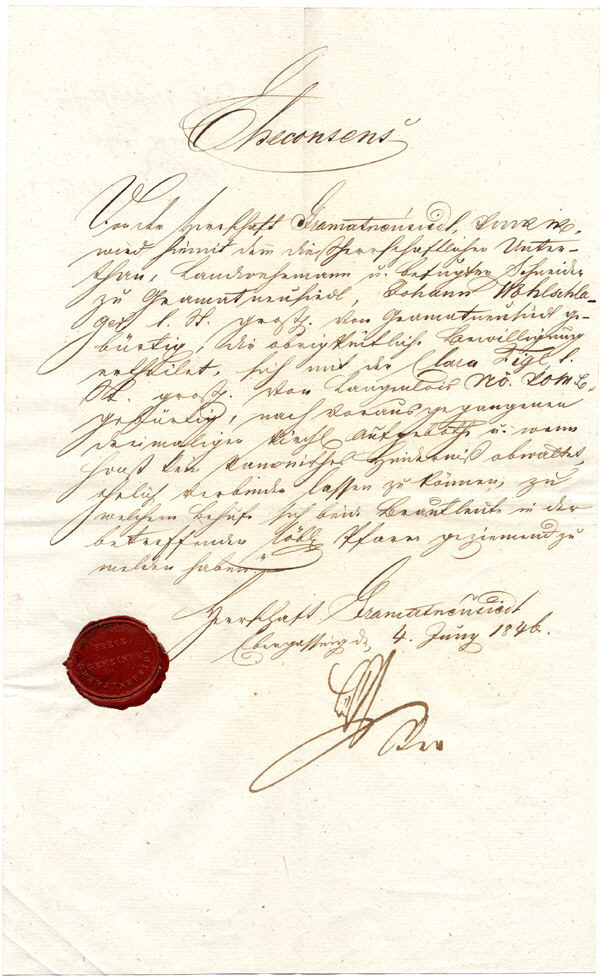 Eheconsens
Von der Herrschaft Gramatneusiedl, V.U.W.W.,
wird hiemit dem diesherrschaftlichen Unter-
than, Landwehrmann u. befugten Schneider
zu Gramatneusiedl, Johann Wohlschla-
gel l. St. großj. von Gramatneusiedl ge-
bürtig, die obrigkeitliche Bewilligung
ertheilet, sich mit der Clara Figl, l.
St. großj. von Langenlois NÖ.
gebürtig, nach vorausgegangenen
dreimaligen kirchl. Aufgebothe u. wenn
sonst kein kanonisches Hinderniß obwaltet,
ehelich verbinden lassen zu können, zu
welchem Behufe sich beide Brautleute in der
betreffenden löbl. Pfarre geziemend zu
melden haben.
Herrschaft Gramatneusiedl
Ebergassing den 4. Juny 1846.
GEMEINDE